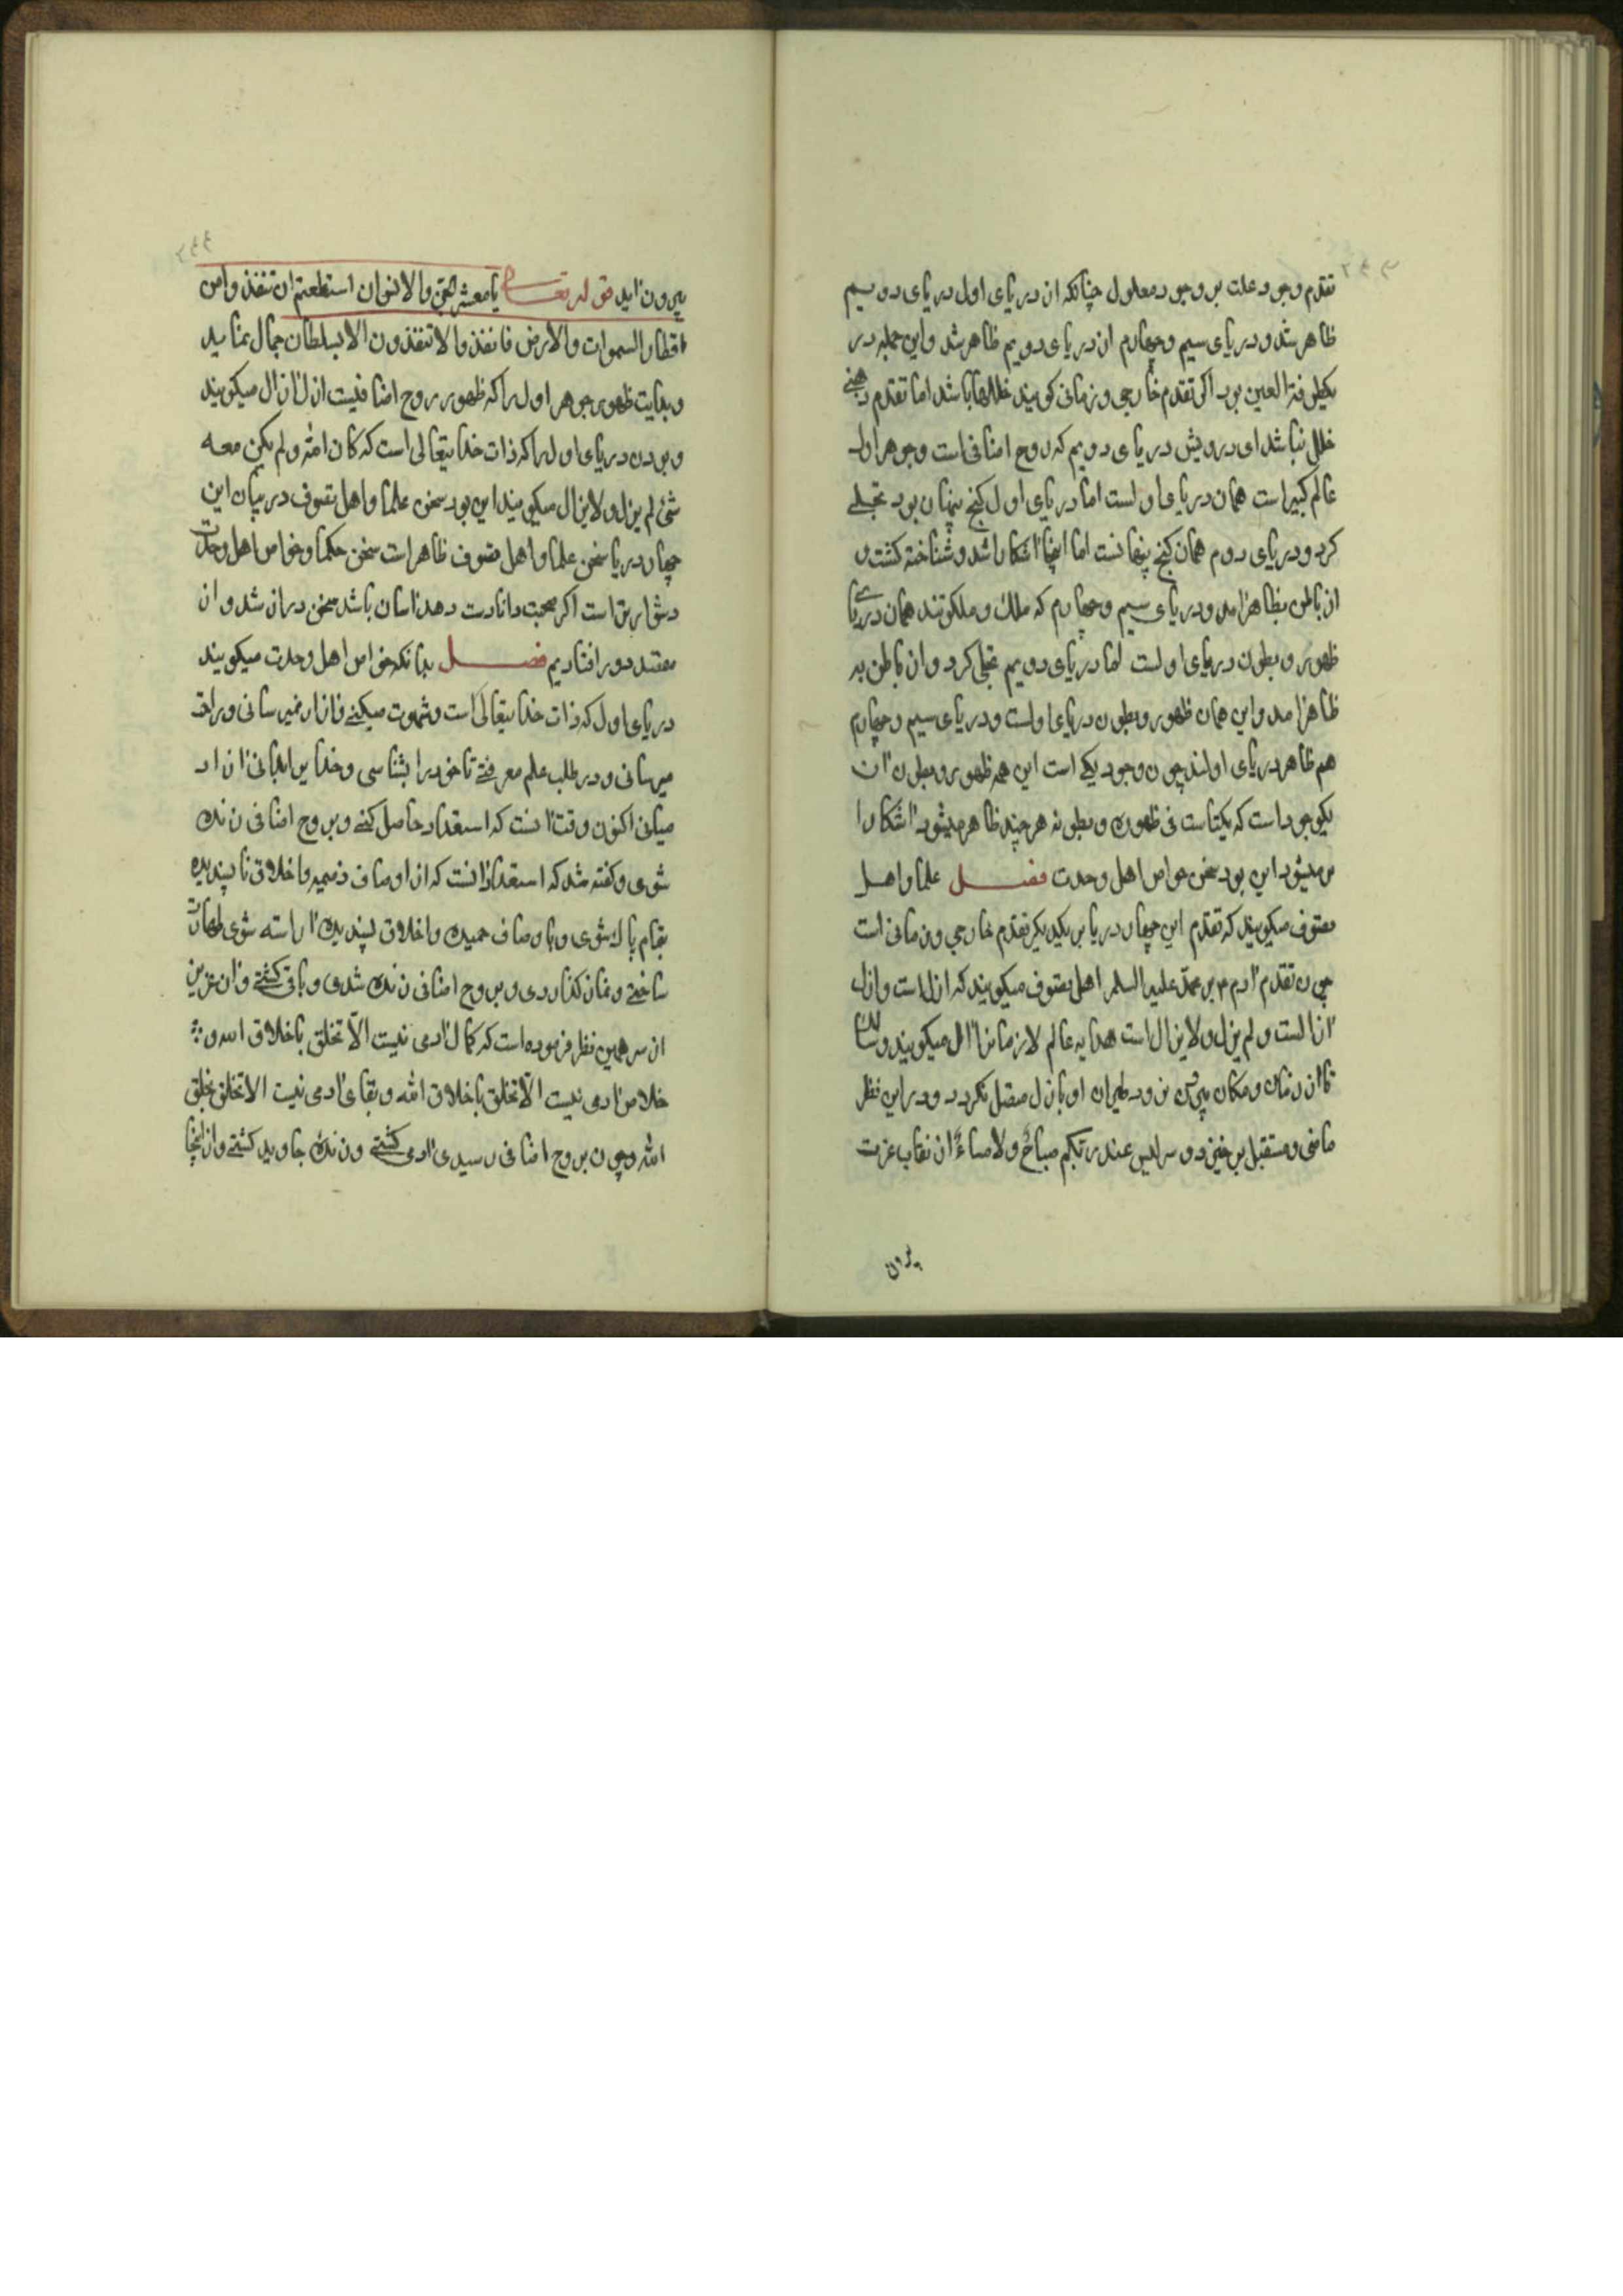 تقدم وجود علت بر وجود معلول چنانکه از دریای اول دریای دویم
ظاهر شد و دریای سیم و چهارم از دریای دویم ظاهر شد و این جمله در
یکطرفة العین بود اگر تقدم خارجی و زمانی کویند خللها باشد اما تقدم ذهنی
خلل نباشد ای درویش دریای دویم که روح اضافی است و جوهر اول
عالم کبیر است همان دریای اولست اما دریای اول کنج پنهان بود تجلی
کرد و دریای دوم همان کنج پنهانست اما اینجا آشکارا شد و شناخته کشت و
از باطن بظاهر آمد و دریای سیم و چهارم که ملک و ملکوتند همان دریای
ظهور و بطون دریای اولست اما دریای دویم تجلی کرد و از باطن به
ظاهر آمد و این همان ظهور و بطون دریای اولست و دریای سیم و چهارم
هم ظاهر دریای اولند چون وجود یکی است این همه ظهور و بطون از آن
یکوجود است که یکتاست فی ظهوره و بطونه هر چند ظاهر میشود آشکارا
تر میشود این بود سخن خواص اهل وحدت فصل علما و اهل
تصوف میکویند که تقدم این چهار دریا بر یکدیکر تقدم خارجی و زمانی است
چون تقدم آدم م بر محمد علیه السلم اهل تصوف میکویند که ازل است و ازل
آزالست و لم یزل و لایزال است هدایه عالم لازمانرا ازل میکویند و سالک
تا از زمان و مکان بیرون نرود طیران او بازل متصل نکردد و در این نظر
ماضی و مستقبل بر خیزد و سر لیس عند ربکم صباح ولا مساء از نقاب عزت
بیرون
بیرون آید قوله تعالی یا معشر الجن والانس ان استطعتم ان تنفذوا من
اقطار السموات والارض فانفذوا لا تنفذون الا بسلطان جمال نماید
و بدایت ظهور جوهر اول را که ظهور روح اضافیست ازل آزال میکویند
و بودن دریای اول را که ذات خدایتعالی است که کان الله و لم یکن معه
شئ لم یزل و لایزال میکویند این بود سخن علما و اهل تصوف در بیان این
چهار دریا سخن علما و اهل تصوف ظاهر است سخن حکما و خواص اهل وحدت
دشوارتر است اکر صحبت دانا دست دهد آسان باشد سخن دراز شد و از
مقصد دور افتادیم فصل بدانکه خواص اهل وحدت میکویند
دریای اول که ذات خدایتعالی است و شهوت میکنی و آزار نمیرسانی و راحت
میرسانی و در طلب علم معرفتی تا خود را بشناسی و خدایرا بدانی از ان اد
میانی اکنون وقت آنست که استعداد حاصل کنی و بروح اضافی زنده
شوی و کفته شد که استعداد آنست که از اوصاف ذمیمه و اخلاق ناپسندیده
بتمام پاک شوی و باوصاف حمیده و اخلاق پسندیده آراسته شوی طهارت
ساختی و نماز کذاردی و بروح اضافی زنده شدی و باقی کشتی و آن عزیز
از سر همین نظر فرموده است که کمال آدمی نیست الا تخلق باخلاق الله و
خلاص آدمی نیست الا تخلق باخلاق الله و بقای آدمی نیست الا تخلق بخلق
الله و چون بروح اضافی رسیدی آدمی کشتی و زنده جاوید کشتی و از اینجا